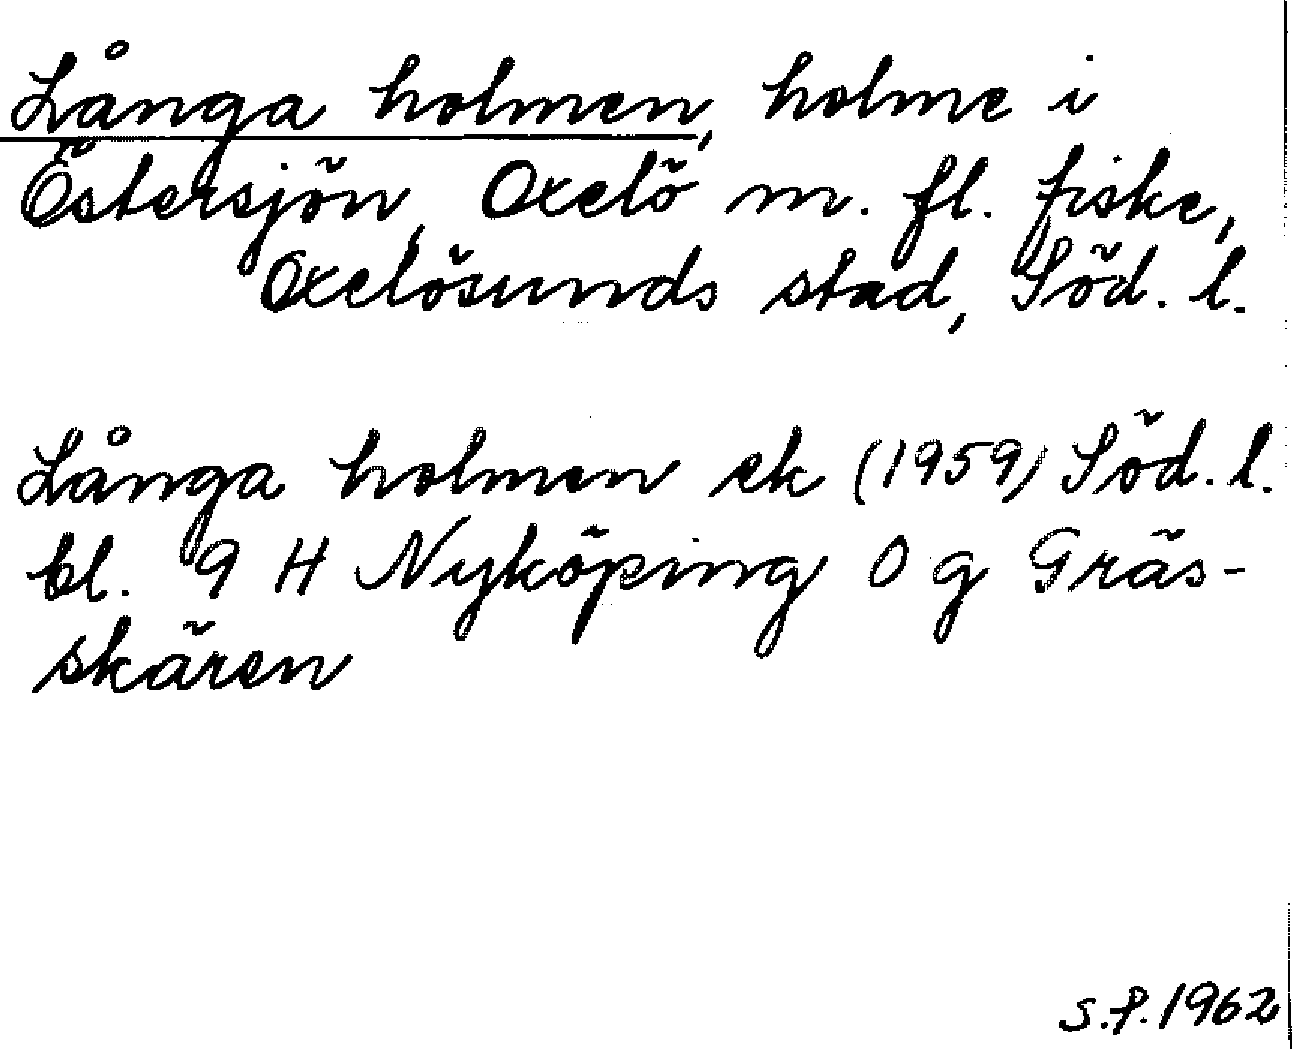 Långa holmen, holme i
Östersjön, Oxelö m. fl. fiske,
Oxelösunds stad, Söd. l.
Långa holmen ek (1959) Söd. l.
bl. 9 H Nyköping 0 g Gräs-
skären
S.P. 1962